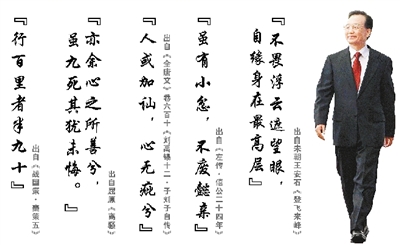 『不畏浮云遮望眼，
自缘身在最高层』
出自宋朝王安石《登飞来峰》
『虽有小忿，不废懿亲』
出自《左传·僖公二十四年》
『人或加讪，心无疵兮』
出自《全唐文》卷六百十《刘禹锡十二·子刘子自传》
『亦余心之所善兮，
虽九死其犹未悔。』
出自屈原《离骚》
『行百里者半九十』
出自《战国策·秦策五》